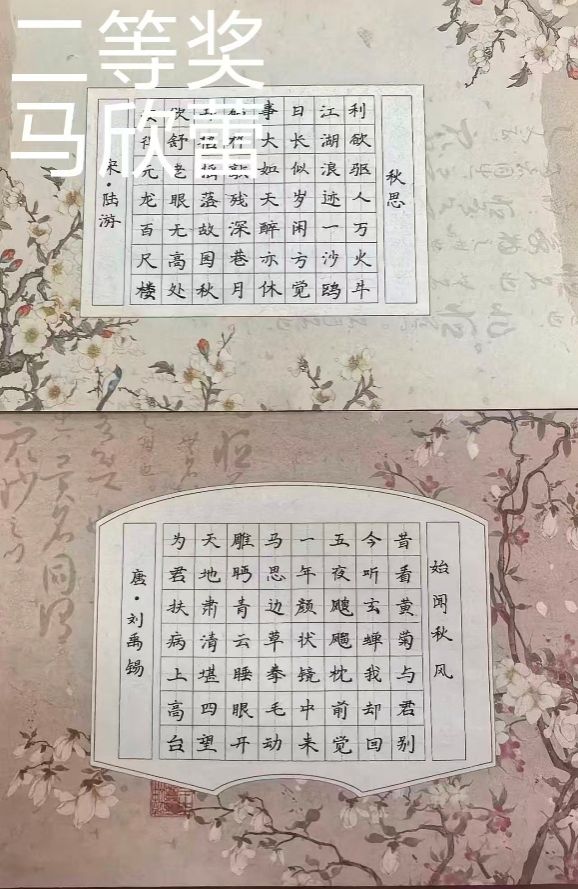 二等奖
马欣蕾
秋思
利欲驱人万火牛
江湖浪迹一沙鸥
日长似岁闲方觉
事大如天醉亦休
敲残深巷月
摇落故园秋
欲舒老眼无高处
元龙百尺楼
宋·陆游
始闻秋风
昔看黄菊与君别
今听玄蝉我却回
五夜飕飗枕前觉
一年颜状镜中来
马思边草拳毛动
雕眄青云睡眼开
天地肃清堪四望
为君扶病上高台
唐·刘禹锡